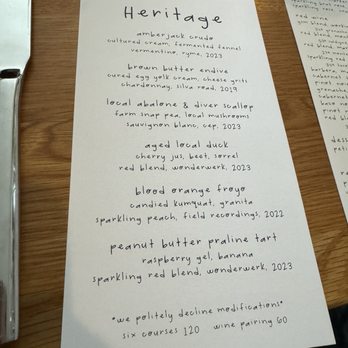 Heritage
amberjack crudo
cultured cream, fermented fennel
vermentino, ryme, 2023
brown butter endive
cured egg yolk cream, cheese grits
chardonnay, silva road, 2019
local abalone & diver scallop
farm snap pea, local mushrooms
sauvignon blanc, cep, 2023
aged local duck
cherry jus, beet, sorrel
red blend, wonderwerk, 2023
blood orange froyo
candied kumquat, granita
sparkling peach, field recordings, 2022
peanut butter praline tart
raspberry gel, banana
sparkling red blend, wonderwerk, 2023
*we politely decline modifications*
six courses 120 wine pairing 60
red wine